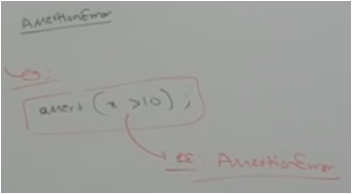 AssertionError
eg:
assert (x >10) ;
RE: AssertionError